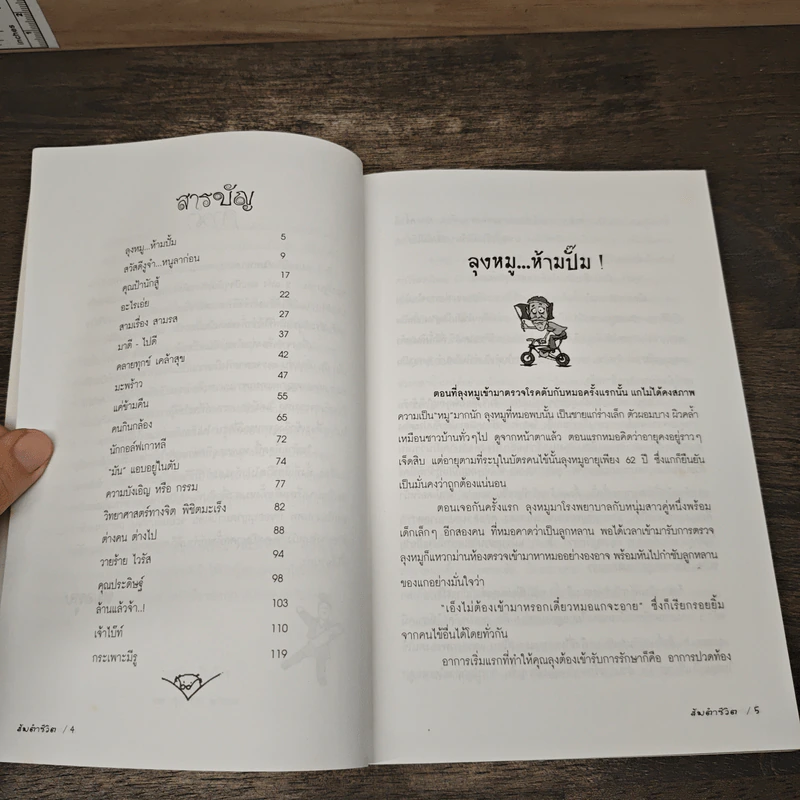 สารบัญ
ลุงหมู...ห้ามปั๊ม 5
สวัสดีงูจ๋า...หนูลาก่อน 9
คุณป้านักสู้ 17
อะไรเอ่ย 22
สามเรื่อง สามรส 27
มาดี - ไปดี 37
คลายทุกข์ เคล้าสุข 42
มะพร้าว 47
แค่ข้ามคืน 55
คนกินกล้อง 65
นักกอล์ฟเกาหลี 72
"มัน" แอบอยู่ในตับ 74
ความบังเอิญ หรือ กรรม 77
วิทยาศาสตร์ทางจิต พิชิตมะเร็ง 82
ต่างคน ต่างไป 88
วายร้าย ไวรัส 94
คุณประดิษฐ์ 98
ล้านแล้วจ้า..! 103
เจ้าโบ๊ท์ 110
กระเพาะมีรู 119
/ 4
ลุงหมู...ห้ามปั๊ม !
ตอนที่ลุงหมูเข้ามาตรวจโรคตับกับหมอครั้งแรกนั้น แกไม่ได้คงสภาพ
ความเป็น"หมู"มากนัก ลุงหมูที่หมอพบนั้น เป็นชายแก่ร่างเล็ก ตัวผอมบาง ผิวคล้ำ
เหมือนชาวบ้านทั่วๆไป ดูจากหน้าตาแล้ว ตอนแรกหมอคิดว่าอายุคงอยู่ราวๆ
เจ็ดสิบ แต่อายุตามที่ระบุในบัตรคนไข้นั้นลุงหมูอายุเพียง 62 ปี ซึ่งแกก็ยืนยัน
เป็นมั่นคงว่าถูกต้องแน่นอน
ตอนเจอกันครั้งแรก ลุงหมูมาโรงพยาบาลกับหนุ่มสาวคู่หนึ่งพร้อม
เด็กเล็กๆ อีกสองคน ที่หมอคาดว่าเป็นลูกหลาน พอได้เวลาเข้ามารับการตรวจ
ลุงหมูก็แหวกม่านห้องตรวจเข้ามาหาหมออย่างองอาจ พร้อมหันไปกำชับลูกหลาน
ของแกอย่างมั่นใจว่า
"เอ็งไม่ต้องเข้ามาหรอกเดี๋ยวหมอแกจะอาย" ซึ่งก็เรียกรอยยิ้ม
จากคนไข้อื่นได้โดยทั่วกัน
อาการเริ่มแรกที่ทำให้คุณลุงต้องเข้ารับการรักษาก็คือ อาการปวดท้อง
/ 5
inches